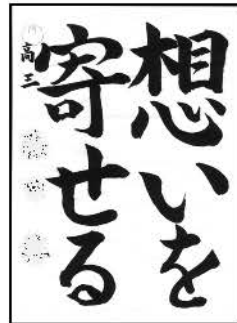 想いを
寄せる
高三